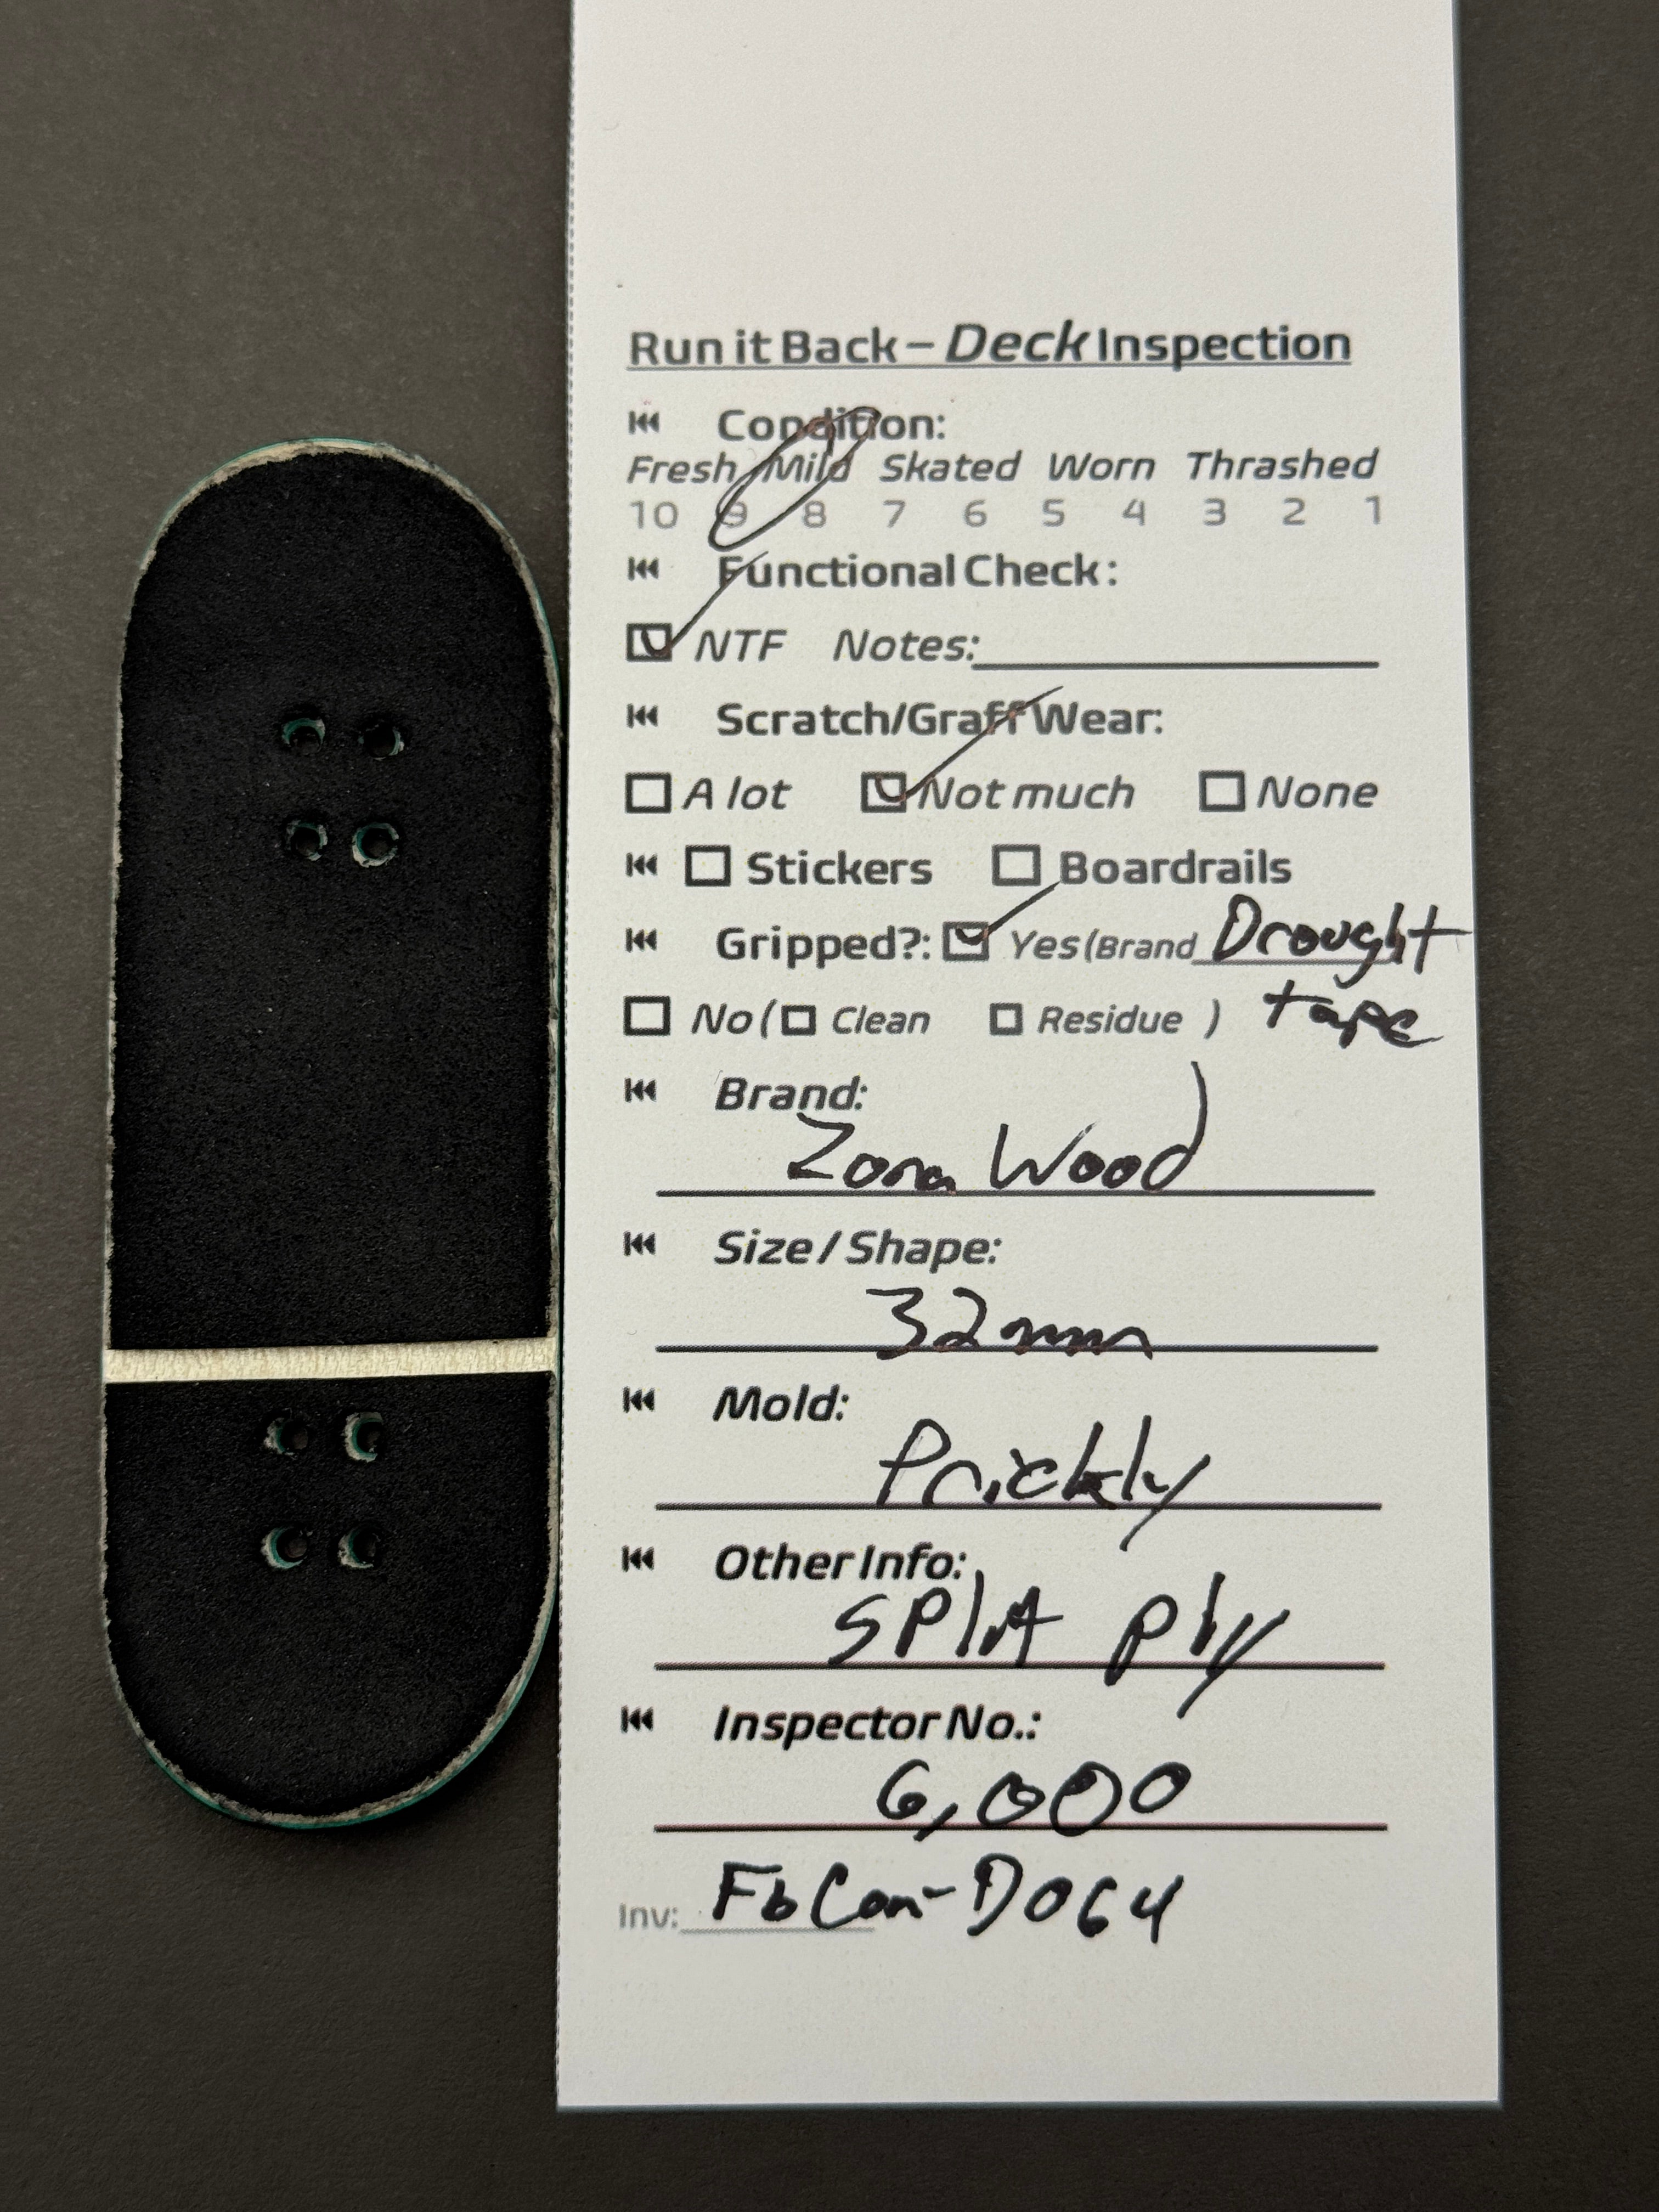 Run it Back – Deck Inspection
Condition:
Fresh Mild Skated Worn Thrashed
10 9 8 7 6 5 4 3 2 1
Functional Check:
NTF Notes:
Scratch/Graff Wear:
A lot Not much None
Stickers Boardrails
Gripped?: Yes (Brand Drought
No ( Clean Residue ) tape
Brand:
Zona Wood
Size / Shape:
32mm
Mold:
Prickly
Other Info:
Split Ply
Inspector No.:
6,000
Inv: FbCon-D064